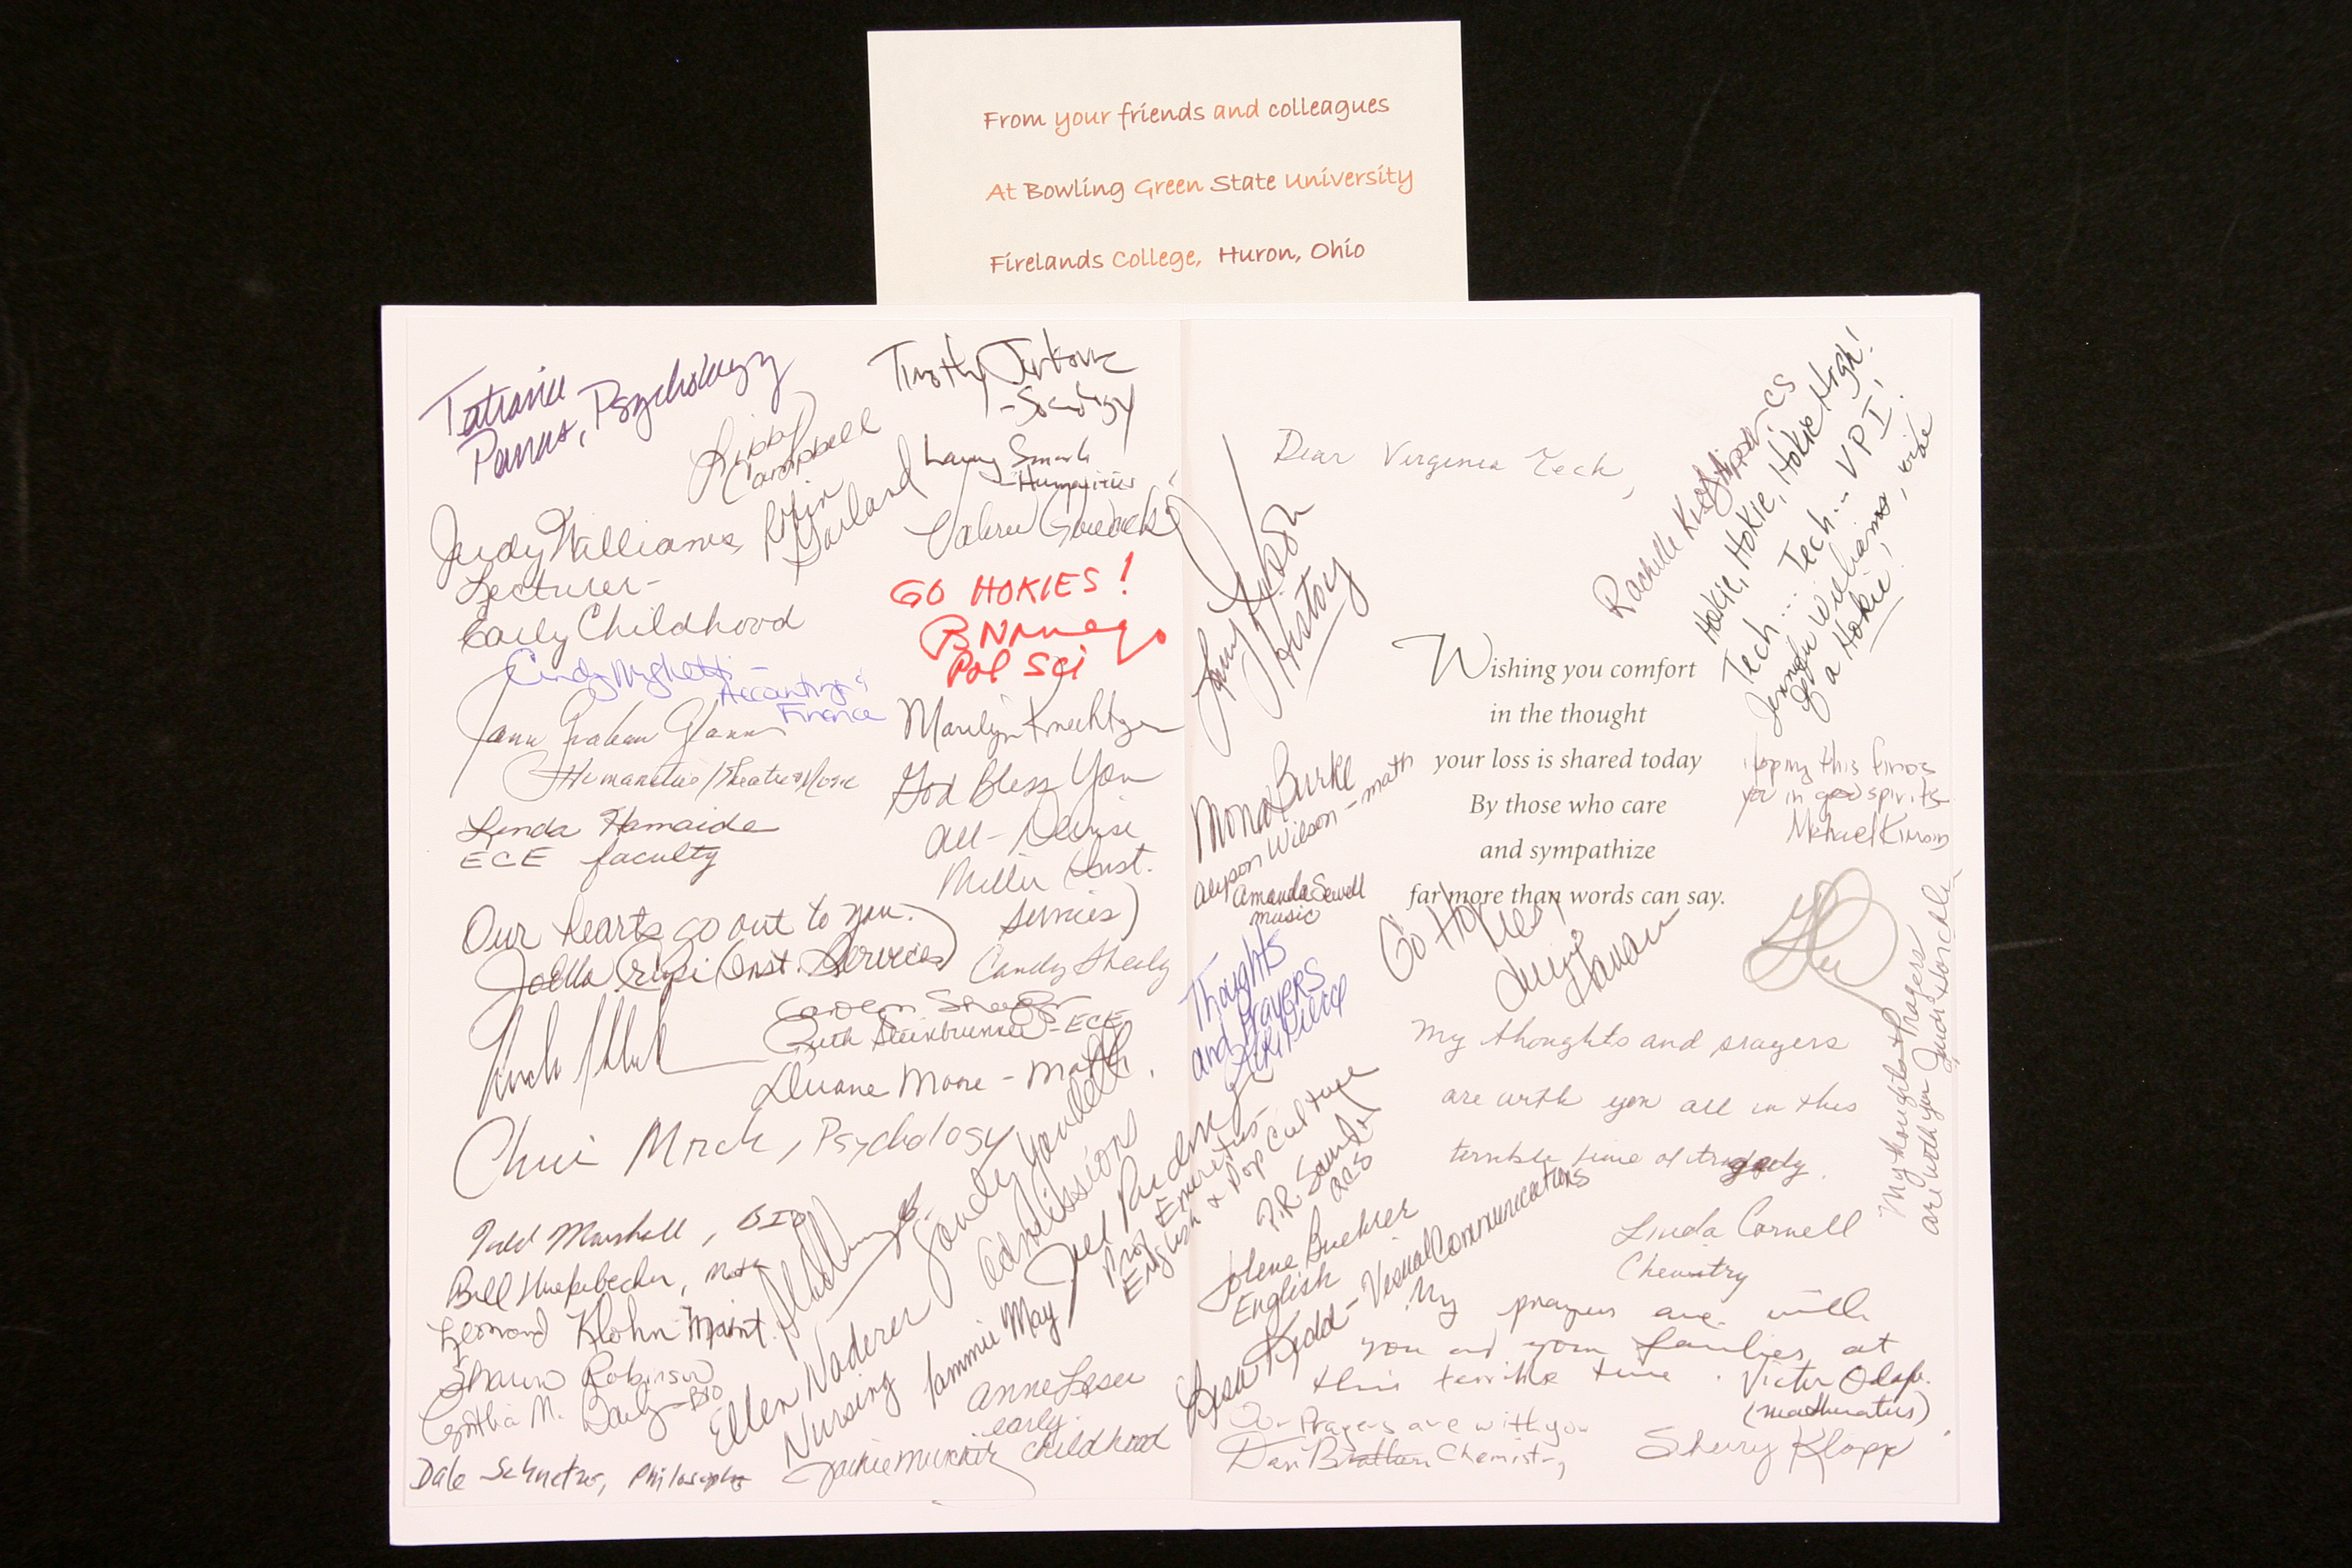 From your friends and colleagues
At Bowling Green State University
Firelands College, Huron, Ohio
Tatiana
Panas, Psychology
Libby
Campbell
Robin
Garland
Judy Williams
Lecturer-
Early Childhood
Cindy
Accounting &
Finance
Humanities/Theatre
Linda Hamaide
ECE faculty
Our hearts go out to you.
(Inst. Services)
Chris Mruk, Psychology
Todd Marshall, BIO
Bill, Math
Leonard Klohn Maint.
Shawn Robinson
Cynthia M. Daily-BIO
Dale Schnetzer, Philosophy
Timothy Jurkovic
-Sociology
Larry Smith
-Humanities
Valerie
GO HOKIES!
Pol Sci
Marilyn
God Bless You
all- Denise
Miller (Inst.
Services)
Candy Shealy
Ruth Steinbrunner-ECE
Duane Moore - Math
Sandy
Admissions
Ellen Naderer
Nursing
Tammie May
Anne Leser
early
childhood
Joel Rudinger
Prof Emeritus-
English & Pop Culture
Dear Virginia Tech,
History
Mona Burke
Alyson Wilson - math
Amanda Sewell
music
Thoughts
and Prayers
P.R. Saunders
ACS
Jolene Buehrer
English
Lesa Kidd - Visual Communications
Rachelle
Hokie, Hokie, Hokie, Hokie High!
Tech... Tech... VPI!
Jennifer Williams, wife
of a Hokie!
Wishing you comfort
in the thought
your loss is shared today
By those who care
and sympathize
far more than words can say.
Hoping this finds
you in good spirits
Michael Kimsin
Go Hokies!
My thoughts and prayers
are with you all in this
terrible time of tragedy.
Linda Cornell
Chemistry
My thoughts & prayers
are with you
My prayers are with
you and your families at
this terrible time.
Victor
(mathematics)
Our Prayers are with you
Dan Chemistry
Sherry Klopp